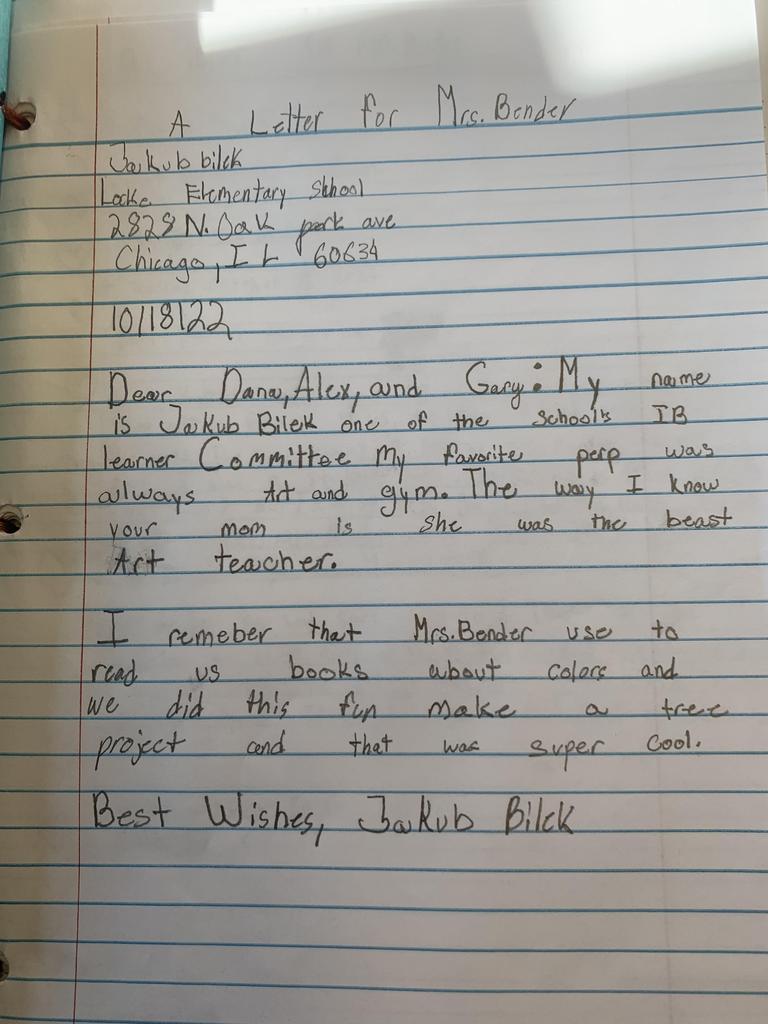 A Letter for Mrs. Bender
Jakub bilek
Locke Elementary Skhool
2828 N. Oak park ave
Chicago, IL 60634
10/18/22
Dear Dana, Alex, and Gary: My name
is Jakub Bilek one of the school's IB
learner Committee My favorite perp was
always Art and gym. The way I know
your mom is She was the beast
Art teacher.
I remeber that Mrs. Bender use to
read us books about colors and
we did this fun make a tree
project and that was super cool.
Best Wishes, Jakub Bilek